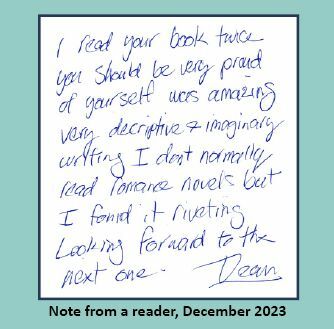 I read your book twice
you should be very proud
of yourself was amazing
very decriptive & imaginary
writing I dont normally
read romance novels but
I found it riveting
Looking forward to the
next one. Dean
Note from a reader, December 2023